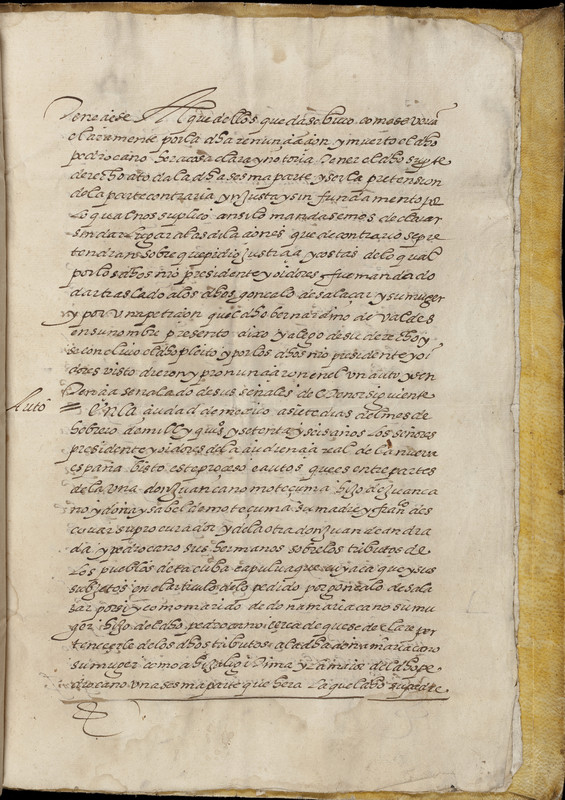 tenerse Aquellos que dasobiuo como se veia
claramente por la dha renunciaçion y muerto el dho
pedro cano hera cosa clara y notoria tener el dho su pte
derecho a toda la dha sesma parte y ser la pretension
de la parte contraria ynjusta y sin fundamento por
lo qual nos suplico ansi lo mandasemos declarar
sin dar lugar a las dilaciones que de contrario se pre
tendran sobre que pidio justicia y costas de lo qual
por los dhos mio presidente y oidores fue mandado
dar traslado a los dhos gonçalo de salaçar y su muger
y por una petiçion que el dho bernardino de valdes
en su nombre presento dixo y alego de su derecho y
se concluio el dho pleito y por los dhos mio presidente y oi
dores visto dieron y pronunçiaron en el un auto y sen
tençia señalado de sus señales del tenor siguiente
Auto = En la ciudad de mexico a siete dias del mes de
hebrero de mill y quios y setenta y seis años los señores
presidente y oidores de la audiençia real de la nueva
españa bisto este proceso o autos que es entre partes
de la una don juan cano moteçuma hijo de juan ca
no y doña ysabel de moteçuma su madre y franco de es
covar su procurador y de la otra don juan de andra
da y pedro cano sus hermanos sobre los tributos de
los pueblos de tacuba capulaguacuyaca que y sus
subjetos en el articulo de lo pedido por gonçalo de sala
zar por si y como marido de doña maria cano su mu
ger hijo del dho pedro cano cerca de que se declare per
tenecerle de los dhos tributos a la dha doña maria cano
su muger como a hija ligitima y eredera del dho pe
dro cano una sesma parte que hera la que el dho su padre